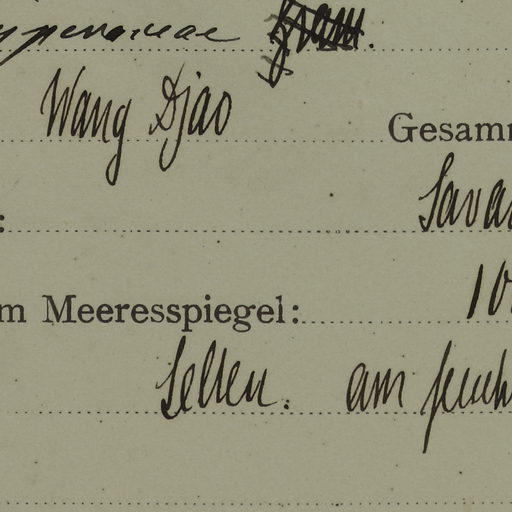 yperaceae
Wang Djao Gesamm
: Savan
m Meeresspiegel: 10
Selten. am feuch